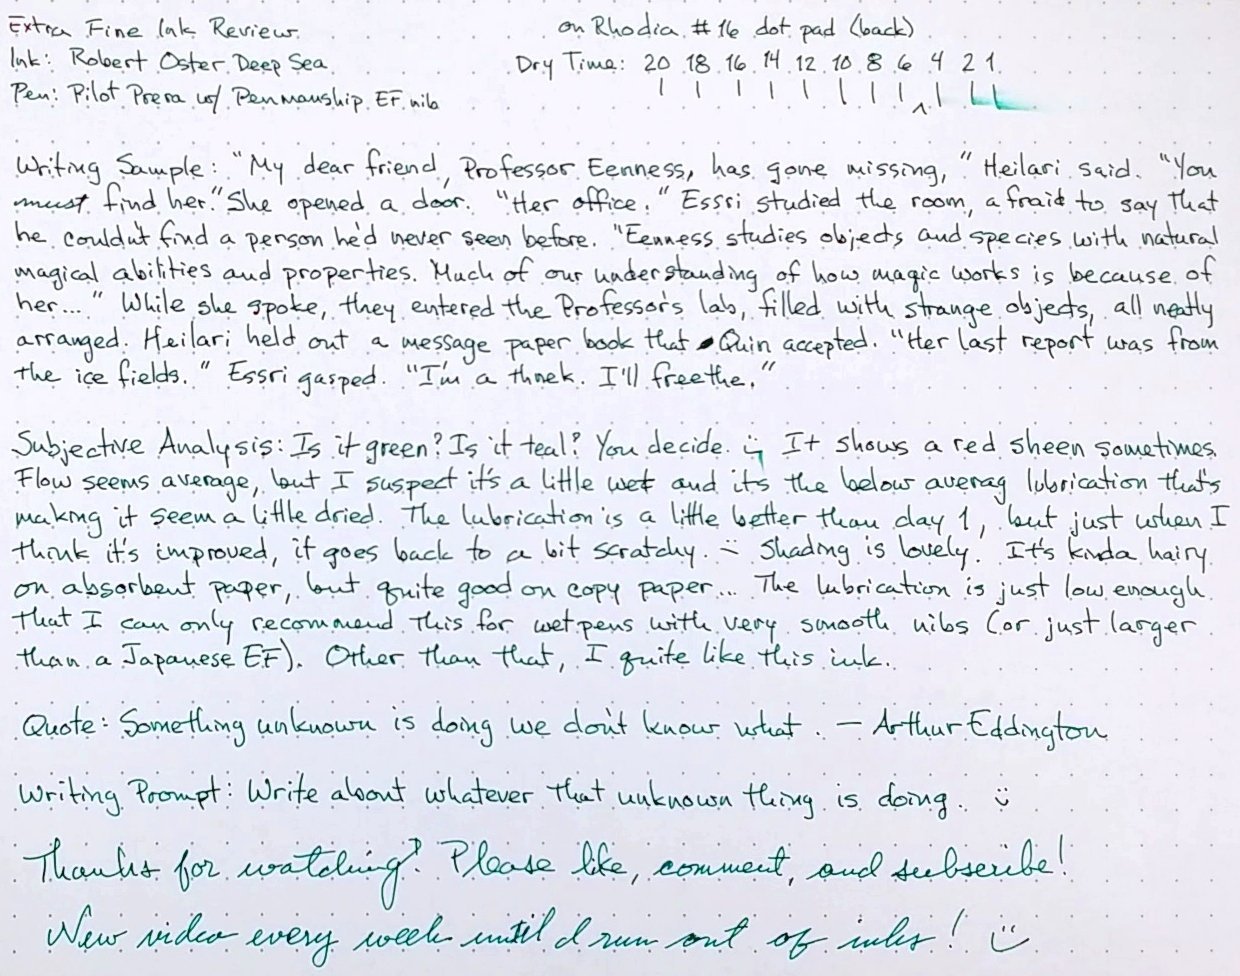 Extra Fine Ink Review on Rhodia #16 dot pad (back)
Ink: Robert Oster Deep Sea Dry Time: 20 18 16 14 12 10 8 6 4 2 1
Pen: Pilot Prera w/ Penmanship EF nib
Writing Sample: "My dear friend, Professor Eenness, has gone missing," Heilari said. "You
must find her." She opened a door. "Her office." Essri studied the room, afraid to say that
he couldn't find a person he'd never seen before. "Eenness studies objects and species with natural
magical abilities and properties. Much of our understanding of how magic works is because of
her..." While she spoke, they entered the Professor's lab, filled with strange objects, all neatly
arranged. Heilari held out a message paper book that Quin accepted. "Her last report was from
the ice fields." Essri gasped. "I'm a thnek. I'll freethe."
Subjective Analysis: Is it green? Is it teal? You decide. :) It shows a red sheen sometimes.
Flow seems average, but I suspect it's a little wet and its the below averag lubrication that's
making it seem a little dried. The lubrication is a little better than day 1, but just when I
think it's improved, it goes back to a bit scratchy. :( Shading is lovely. It's kinda hairy
on absorbent paper, but quite good on copy paper... The lubrication is just low enough
that I can only recommend this for wet pens with very smooth nibs (or just larger
than a Japanese EF). Other than that, I quite like this ink.
Quote: Something unknown is doing we don't know what. — Arthur Eddington
Writing Prompt: Write about whatever that unknown thing is doing. :)
Thanks for watching! Please like, comment, and subscribe!
New video every week until I run out of inks! :)